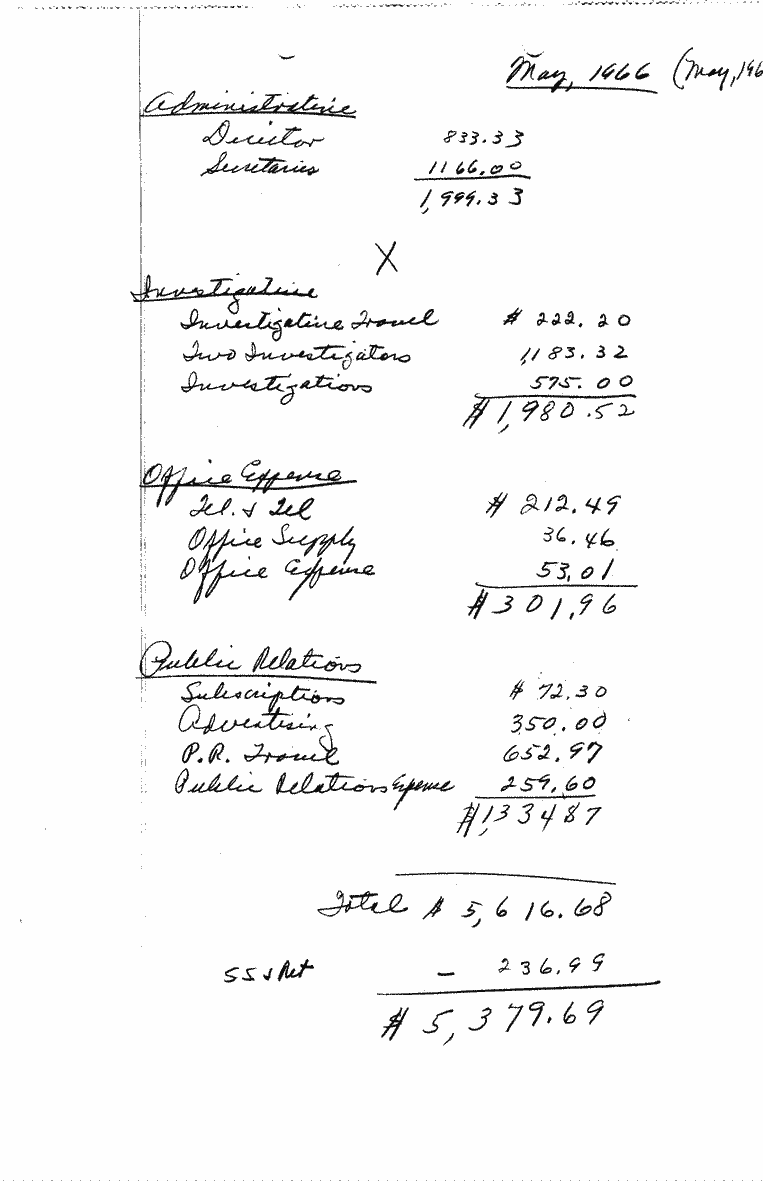 May, 1966 (May, 196
Administrative
Director 833.33
Secretaries 1166.00
1,999.33
X
Investigative
Investigative Travel $ 222.20
Two Investigators 1,183.32
Investigations 575.00
$1,980.52
Office Expense
Tel. & Tel $ 212.49
Office Supply 36.46
Office Expense 53.01
$301.96
Public Relations
Subscriptions $ 72.30
Advertising 350.00
P.R. Travel 652.97
Public Relations Expense 259.60
$1,33487
Total $ 5,616.68
SS & Ret - 236.99
$ 5,379.69